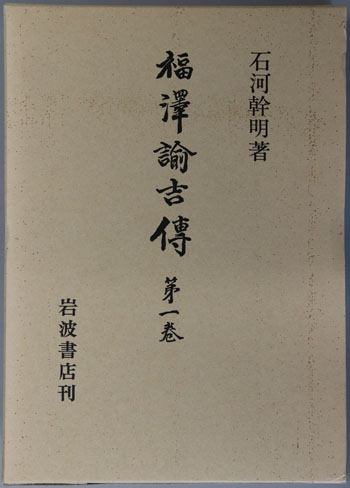 石河幹明著
福澤諭吉傳 第一卷
岩波書店刊